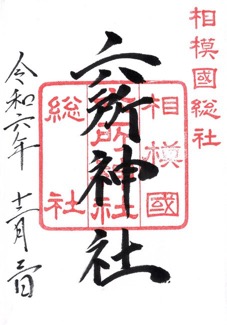 相模國総社
六所神社
相模國
六所神社
総社
令和六年
十二月三日